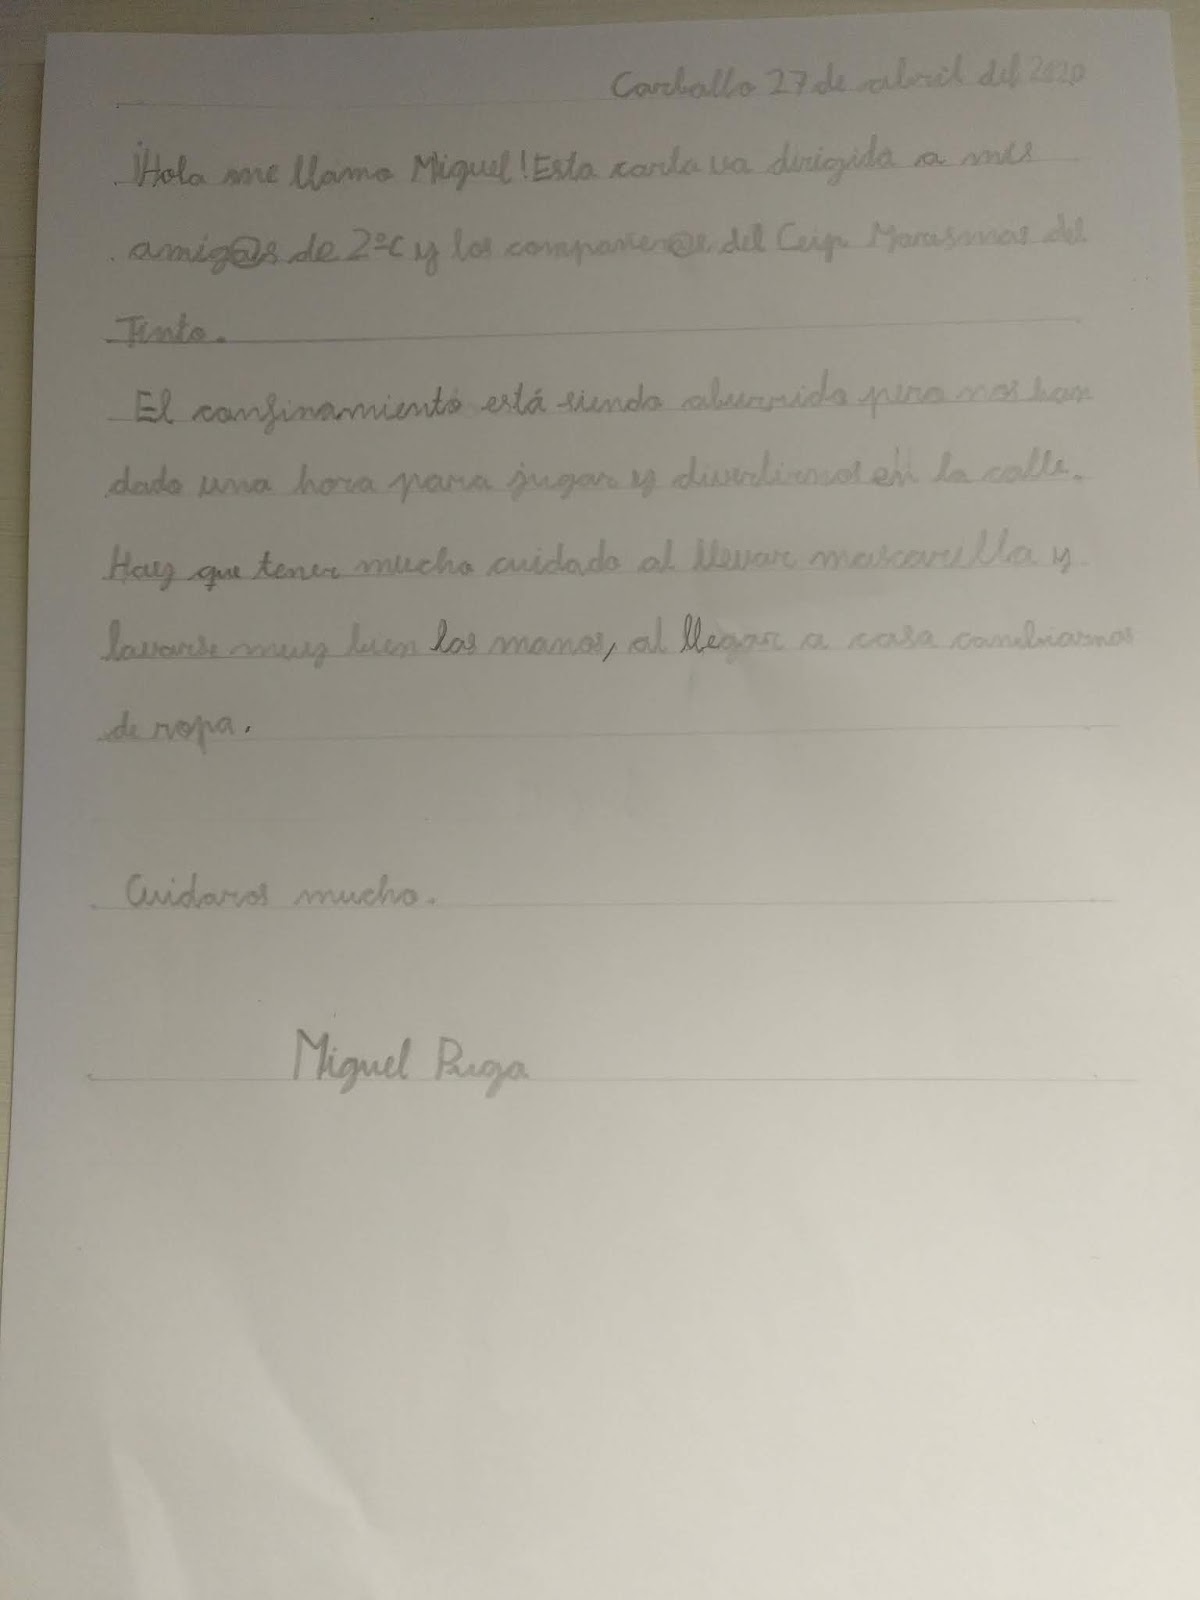 Carballo 27 de abril del 2020
¡Hola me llamo Miguel! Esta carta va dirigida a mis
amig@s de 2ºC y los compañer@s del Ceip Marismas del
Tinto.
El confinamiento está siendo aburrido pero nos han
dado una hora para jugar y divertirnos en la calle.
Hay que tener mucho cuidado al llevar mascarilla y
lavarse muy bien las manos, al llegar a casa cambiarnos
de ropa.
Cuidaros mucho.
Miguel Puga